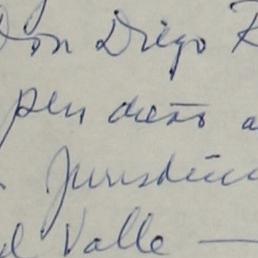 Don Diego R
pen dicto a
Jurisdicc
el Valle —